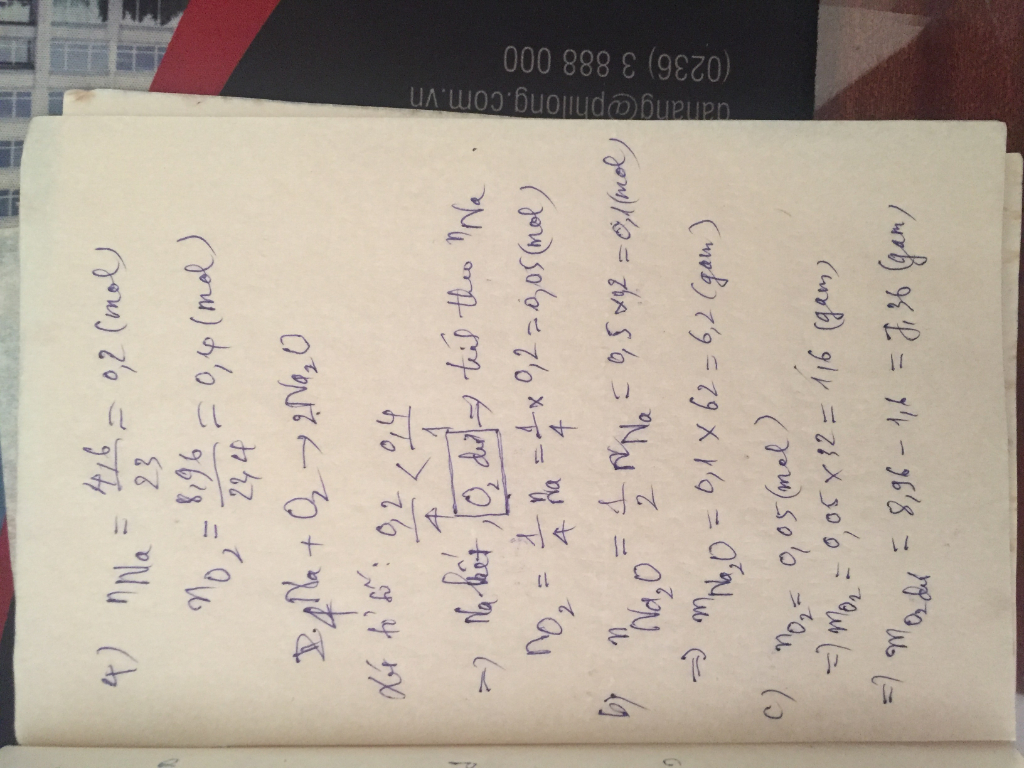 (0236) 3 888 000
danang@philong.com.vn
4) nNa = 4,6/23 = 0,2 (mol)
nO2 = 8,96/22,4 = 0,4 (mol)
4Na + O2 → 2Na2O
Xét tỉ số: 0,2/4 < 0,4/1
=> Na hết, O2 dư => tính theo nNa
nO2 = 1/4 Na = 1/4 x 0,2 = 0,05 (mol)
b) nNa2O = 1/2 nNa = 0,5 x 0,2 = 0,1 (mol)
=> mNa2O = 0,1 x 62 = 6,2 (gam)
c) nO2 = 0,05 (mol)
=> mO2 = 0,05 x 32 = 1,6 (gam)
=> mO2 dư = 8,96 - 1,6 = 7,36 (gam)